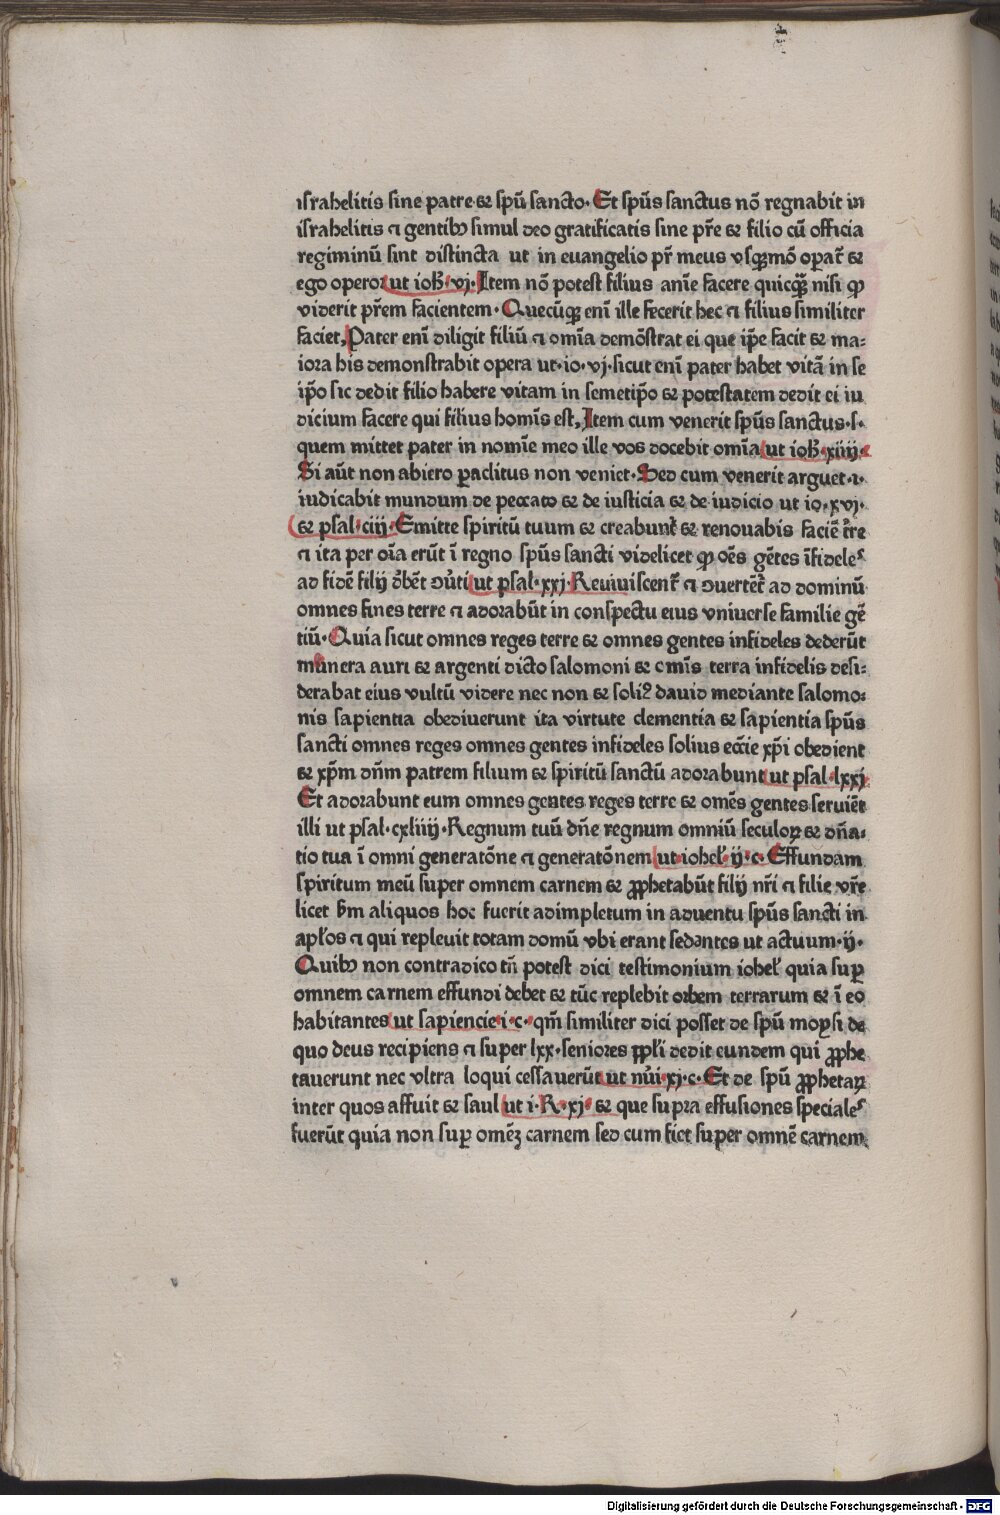 israhelitis sine patre et spū sancto. Et spūs sanctus nō regnabit in
israhelitis ⁊ gentibꝰ simul deo gratificatis sine pr̄e et filio cū officia
regiminū sint distincta ut in euangelio pr̄ meus vsqꝫmō oꝑat̄ et
ego operor ut ioh̄. vj. Item nō potest filius anīe facere quicqꝫ nisi ꝙ
viderit pr̄em facientem. Quecūqꝫ enī ille fecerit hec ⁊ filius similiter
faciet, Pater enī diligit filiū ⁊ omīa demōstrat ei que ip̄e facit et ma⸗
iora his demonstrabit opera ut. io. vj. sicut enī pater habet vitā in se
ip̄o sic dedit filio habere vitam in semetip̄o et potestatem dedit ei iu
dicium facere qui filius homīs est, Item cum venerit spūs sanctus. s.
quem mittet pater in nomīe meo ille vos docebit omīa ut ioh̄. xiiij.
Si aūt non abiero ꝑaclitus non veniet. Sed cum venerit arguet. i.
iudicabit mundum de peccato et de iusticia et de iudicio ut io. xvj.
et psal. ciij. Emitte spiritū tuum et creabunt̄ et renouabis faciē t̄re
⁊ ita per oīa erūt ī regno spūs sancti videlicet ꝙ oēs gētes īfideles
ad fidē filij dēbēt ꝯūti ut psal. xxj. Reuiuiscent̄ ⁊ ꝯuertēt̄ ad dominū
omnes fines terre ⁊ adorabūt in conspectu eius vniuerse familie gē
tiū. Quia sicut omnes reges terre et omnes gentes infideles dederūt
munera auri et argenti dicto salomoni et c mīs terra infidelis desi⸗
derabat eius vultū videre nec non et soliꝰ dauid mediante salomo⸗
nis sapientia obediuerunt ita virtute clementia et sapientia spūs
sancti omnes reges omnes gentes infideles solius eccīe xp̄i obedient
et xp̄m dn̄m patrem filium et spiritū sanctū adorabunt ut psal. lxxj
Et adorabunt eum omnes gentes reges terre et omēs gentes seruiēt
illi ut psal. cxliiij. Regnum tuū dn̄e regnum omniū seculoꝝ et dn̄a⸗
tio tua ī omni generatōne ⁊ generatōnem ut iohel. ij. c. Effundam
spiritum meū super omnem carnem et ꝓphetabūt filij nr̄i ⁊ filie vr̄e
licet ẜm aliquos hoc fuerit adimpletum in aduentu spūs sancti in
apl̄os ⁊ qui repleuit totam domū vbi erant sedentes ut actuum. ij.
Quibꝰ non contradico tn̄ potest dici testimonium iohel quia suꝑ
omnem carnem effundi debet et tūc replebit orbem terrarum et ī eo
habitantes ut sapiencie i. c. qm̄ similiter dici posset de spū moysi de
quo deus recipiens ⁊ super lxx. seniores ppl̄i dedit eundem qui ꝓphe
tauerunt nec vltra loqui cessauerūt ut nūi. xj. c. Et de spū ꝓphetaꝝ
inter quos affuit et saul ut i. R. xj. et que supra effusiones speciales
fuerūt quia non suꝑ omēꝫ carnem sed cum fiet super omnē carnem
Digitalisierung gefördert durch die Deutsche Forschungsgemeinschaft - DFG